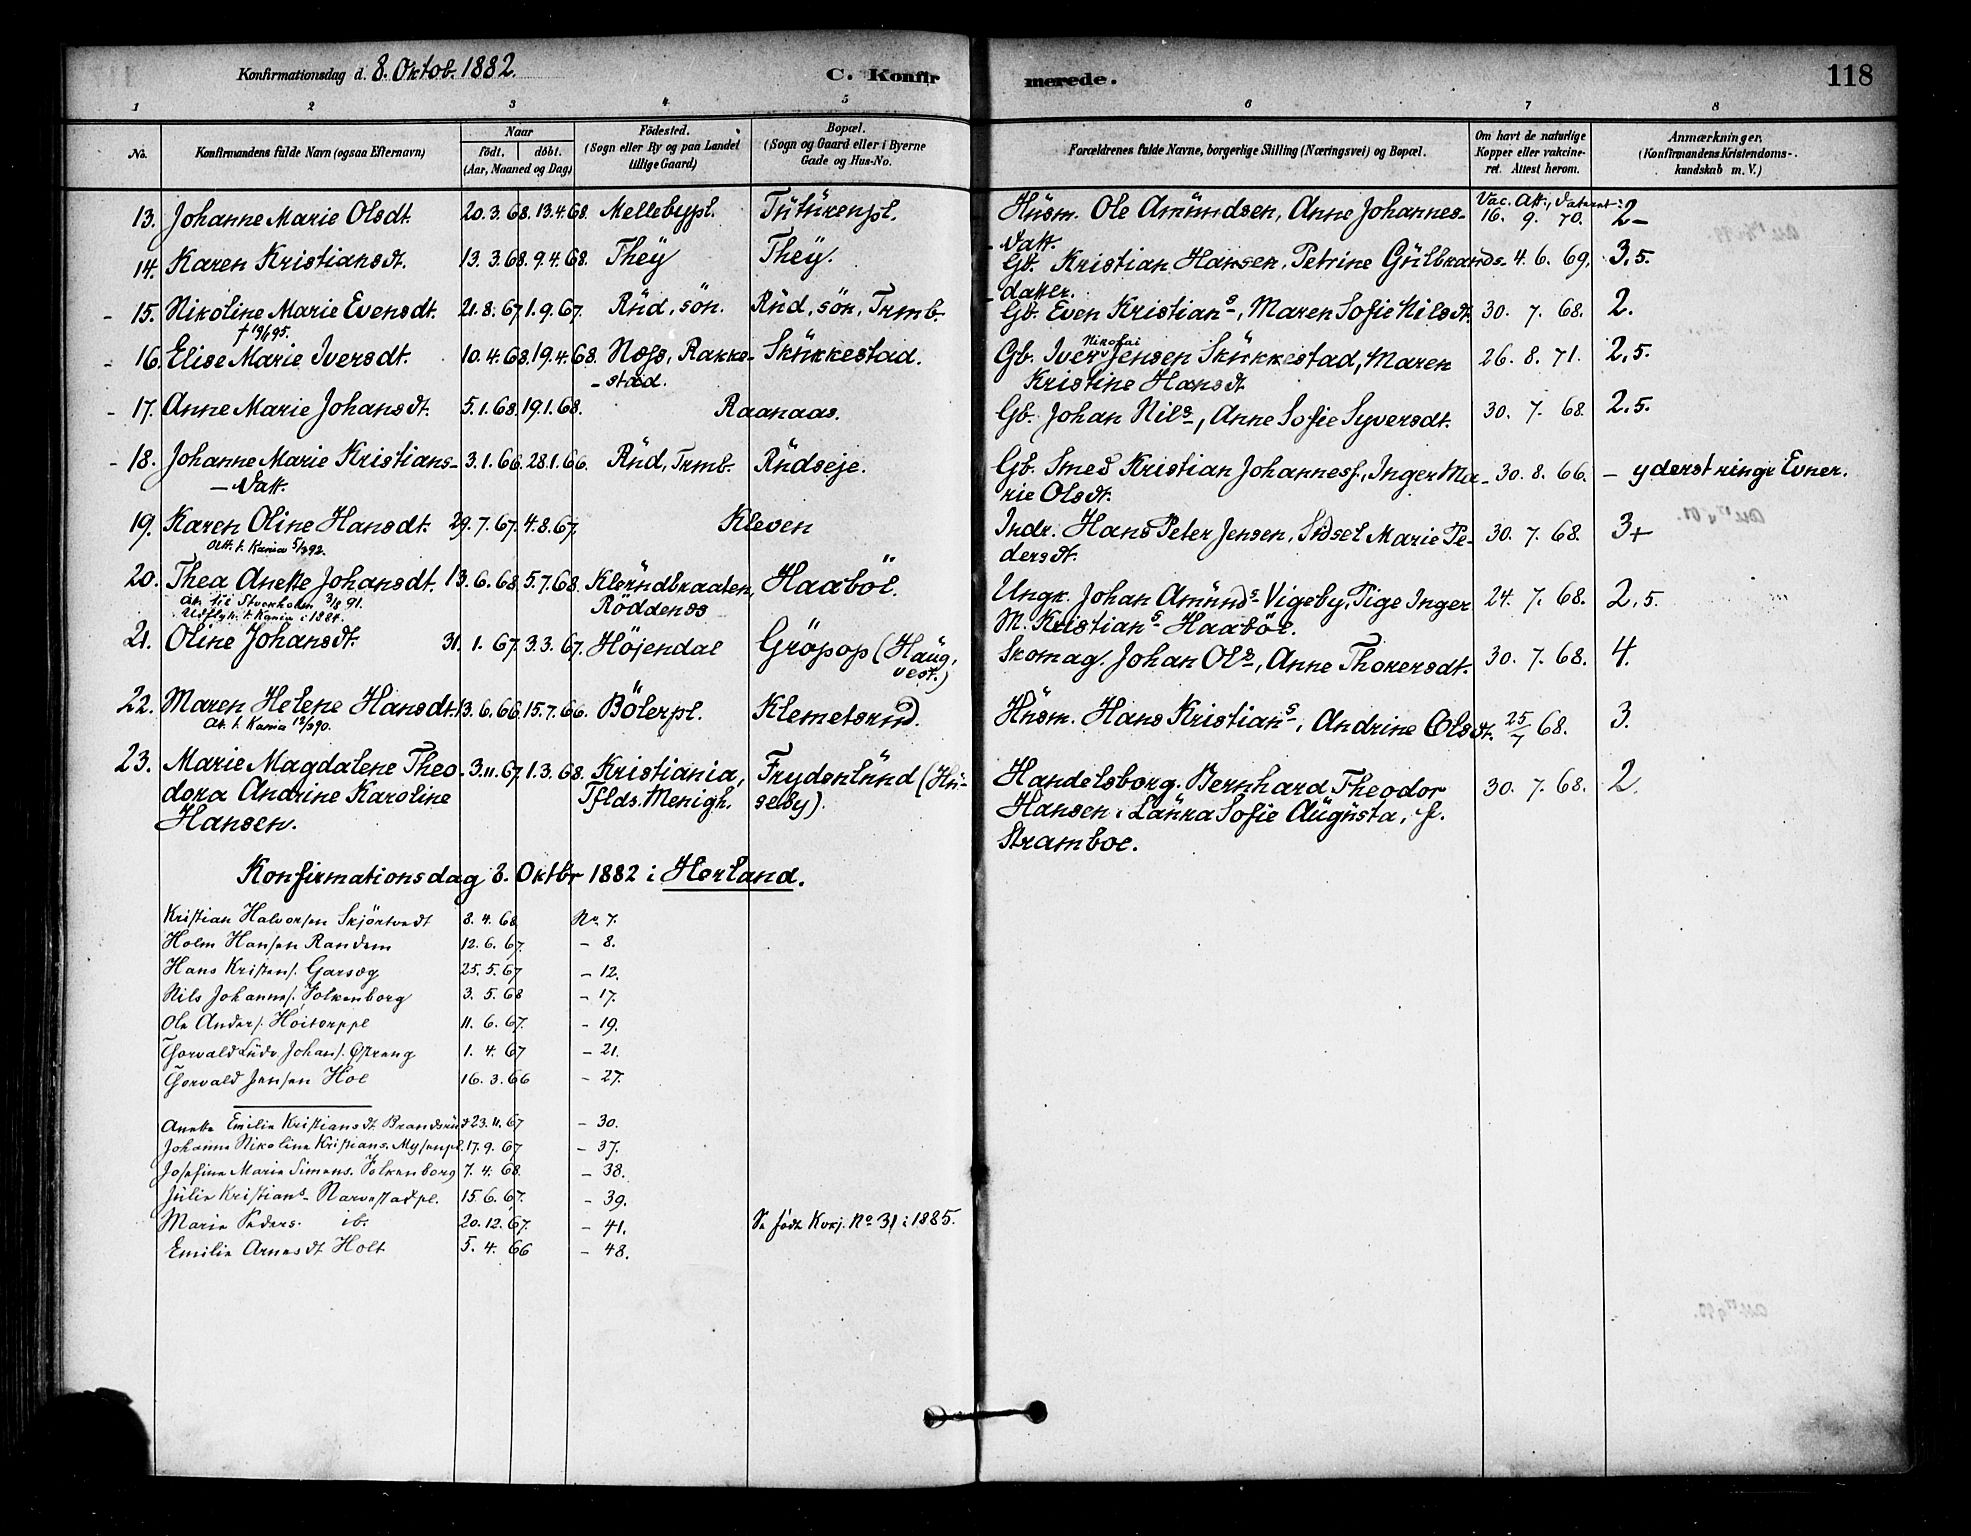 Konfirmationsdag d. 8. Oktob. 1882.
C. Konfir
merede.
118
1 2 3 4 5 6 7 8
No.
Konfirmandens fulde Navn (ogsaa Efternavn)
Naar
födt. döbt.
(Aar, Maaned og Dag)
Födested.
(Sogn eller By og paa Landet
tillige Gaard)
Bopæl.
(Sogn og Gaard eller i Byerne
Gade og Hus-No.
Forældrenes fulde Navne, borgerlige Stilling (Næringsvei) og Bopæl.
Om havt de naturlige
Kopper eller vakcine-
ret. Attest herom.
Anmærkninger,
(Konfirmandens Kristendoms-
kundskab m. V.)
13. Johanne Marie Olsdt. 20. 3. 68. 13. 4. 68. Mellebypl. Tütürenpl. Hüsm. Ole Amündsen, Anne Johannes- Vac. Att., Datert: 16. 9. 70. 2-
- Datt.
14. Karen Kristiansdt. 13. 3. 68. 9. 4. 68. They They. Gb. Kristian Hansen, Petrine Gülbrands- 4. 6. 69. 3,5.
- datter.
- 15. Nikoline Marie Evensdt. 21. 8. 67. 1. 9. 67. Rüd, sön. Rüd, sön, Trmb. Gb. Even Kristians, Maren Sofie Nilsdt. 30. 7. 68. 2.
- 16. Elise Marie Iversdt. 10. 4. 68. 19. 4. 68. Ness, Rakke- Skükkestad. Gb. Iver Nikolai Jensen Skükkestad, Maren 26. 8. 71. 2,5.
- stad. Kristine Hansdt
- 17. Anne Marie Johansdt. 5. 1. 68. 19. 1. 68. Raanaas. Gb. Johan Nils, Anne Sofie Syversdt. 30. 7. 68. 2,5.
- 18. Johanne Marie Kristians- 3. 1. 66. 28. 1. 66. Rüd, Trmb. Rüdseje. Gb. Smed Kristian Johanness., Inger Ma- 30. 8. 66. - yderst ringe Evner.
- Datt. rie Olsdt.
19. Karen Oline Hansdt. 29. 7. 67. 4. 8. 67. Kleven Indr. Hans Peter Jensen, Sidsel Marie Pe- 30. 7. 68. 3+
Att. t. Kania 5/9 92. dersdt.
20. Thea Anette Johansdt. 13. 6. 68. 5. 7. 68. Klerüdbraaten, Haaböl. Ungk. Johan Amünds Vigeby, Pige Inger 24. 7. 68. 2,5.
Att. til Stockholm 3/8 91. Röddenss M. Kristians Haaböl.
Udflyt. t. Kania i 1884.
21. Oline Johansdt. 31. 1. 67. 3. 3. 67. Höjendal Gröpop (Haüg, Skomag. Johan Ols, Anne Thorersdt. 30. 7. 68. 4.
vest.)
22. Maren Helene Hansdt. 13. 6. 66. 15. 7. 66. Bölerpl. Klemetsrud. Hüsm. Hans Kristians, Andrine Olsdt. 25/7 68. 3.
23. Marie Magdalene Theo- 3. 11. 67. 1. 3. 68. Kristiania, Frydenlünd (Hü- Handelsborg. Bernhard Theodor 30. 7. 68. 2.
dora Andrine Karoline Tflds. Menigh. seby). Hansen, Laüra Sofie Aügüsta, f.
Hansen. Stramboe.
Konfirmationsdag 8. Oktbr 1882 i Herland.
Kristian Halvorsen Skjörtvedt 8. 4. 68 No 7.
Holm Hansen Randem 12. 6. 67. - 8.
Hans Kristens. Garseg 25. 5. 67 - 12.
Nils Johannes. Folkenborg 3. 5. 68 - 17.
Ole Anders. Hoitorppl 11. 6. 67. - 19.
Thorvald Lüdv. Johans. Östreng 1. 4. 67 - 21.
Thorvald Jensen Hol 16. 3. 66 - 27.
Anette Emilie Kristiansdt. Brandsrüd 23. 11. 67 - 30.
Johanne Nikoline Kristians. Mysenpl. 17. 9. 67 - 37.
Josefine Marie Simens. Folkenborg 7. 4. 68. - 38.
Jülie Kristians Narvestadpl. 15 6. 67. - 39.
Marie Peders. ib. 20. 12. 67. - 41. Se födte Kvkj. No 31 i 1885.
Emilie Arnesdt Holt 5. 4. 66 - 48.